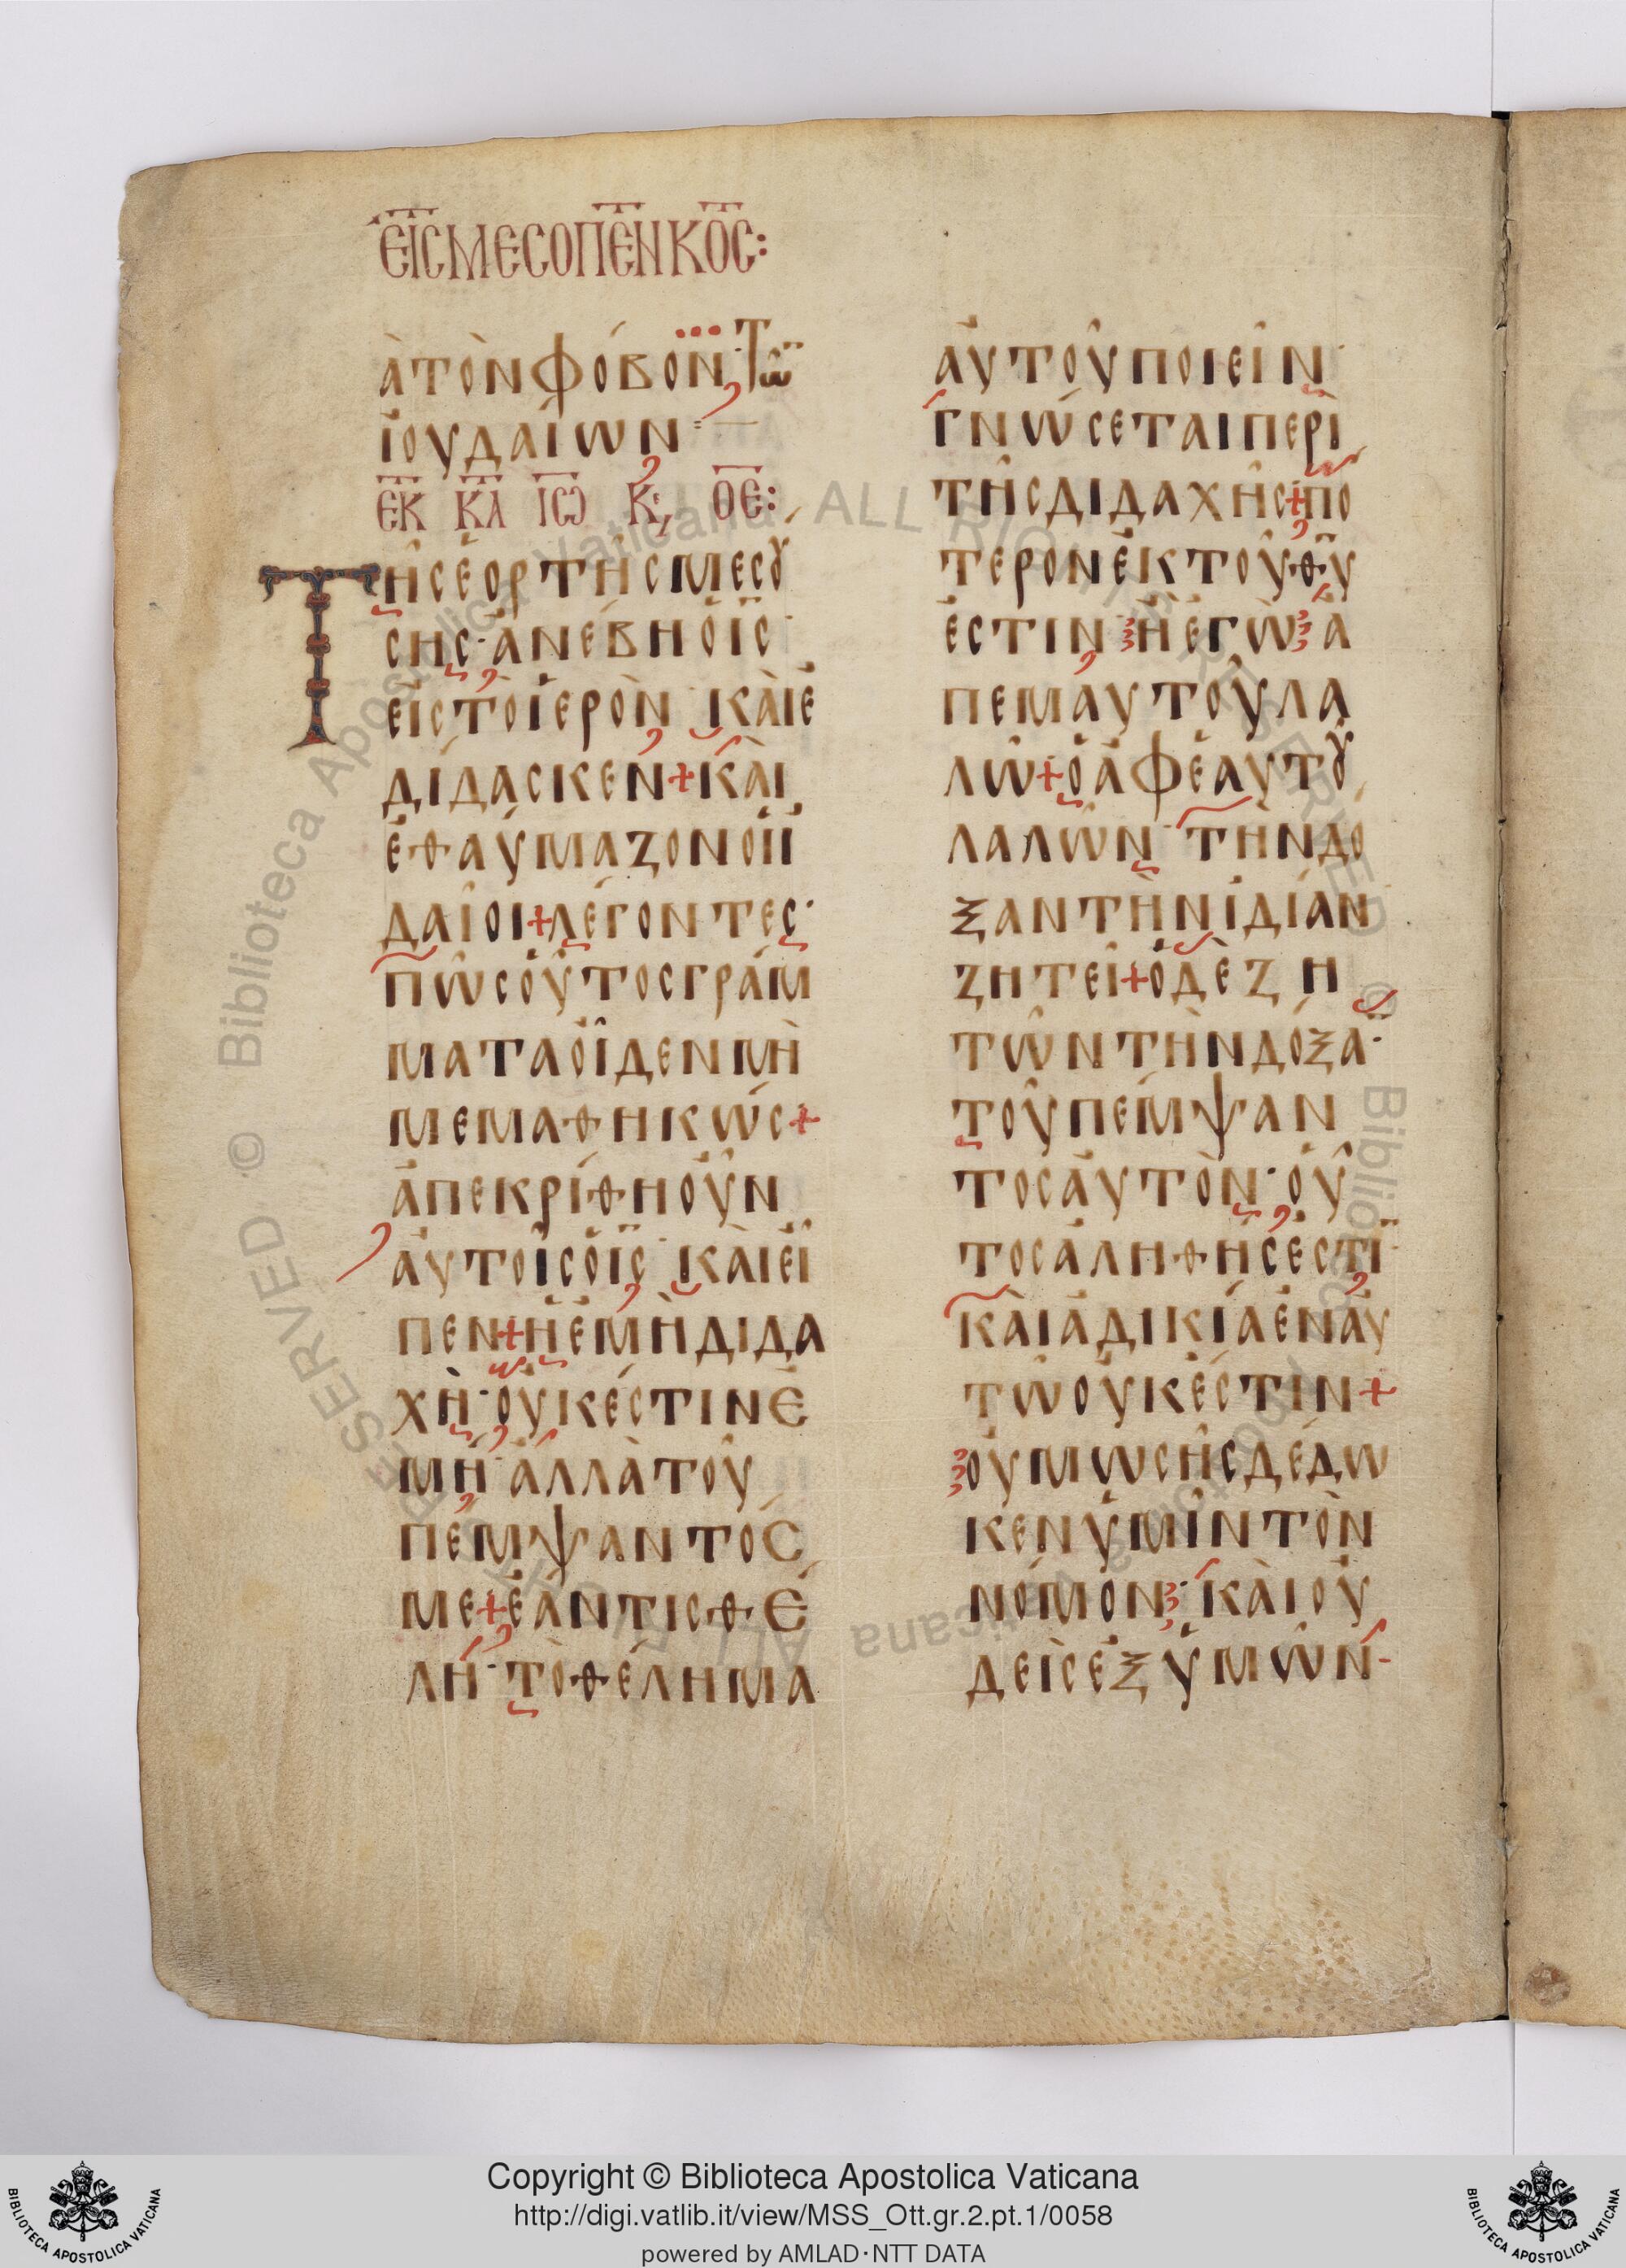 ΕΙϹΜΕϹΟΠΕΝΚΟϹ:
ἀτὸνφόβον Τω̈
ἰουδαίων
ΕΚ ΚΛ ΙϹω Κ, ΘΕ:
Τῆσἑορτῆσμεσȣ́
σησ· ἀνέβηὁις̄
εἰστὸἱερὸν· κὰιἐ
δίδασκεν+κὰι
ἐθαύμαζονὁιϊ
δαῖοι+λέγοντεσ·
πῶσοὗτοσγράμ
ματαοἶδενμὴ
μεμαθηκώσ+
ἀπεκρίθηοὖν
αὐτοῖσὁις̄· κὰιεἶ
πεν+ἡἐμὴδιδα
χὴ· οὐκέστινἐ
μή· ἀλλὰτοῦ
πέμψαντόσ
με+ἐάντισθέ
λῃ· τὸθέλημα
αὐτοῦποιεῖν·
γνώσεταιπερὶ
τῆσδιδαχῆσ+πό
τερονἐκτοῦθυ
ἐστιν· ἢἐγὼἀ
πεμαυτοῦλα
λῶ+ὁἀφἑαυτȣ͂
λαλῶν· τὴνδό
ξαντὴνἰδίαν
ζητεῖ+ὁδὲζη
τῶντὴνδόξα·
τοῦπέμψαν
τοσαὐτὸν· οὗ
τοσἀληθήσἐστϊ·
κὰιἀδικίαἐναὐ
τῶοὐκέστιν+
οὐμωσῆσδέδω
κενὑμῖντὸν
νόμον· κὰιοὐ
δεὶσἐξὑμῶν-
Copyright © Biblioteca Apostolica Vaticana
http://digi.vatlib.it/view/MSS_Ott.gr.2.pt.1/0058
powered by AMLAD·NTT DATA
BIBLIOTECA APOSTOLICA VATICANA
BIBLIOTECA APOSTOLICA VATICANA